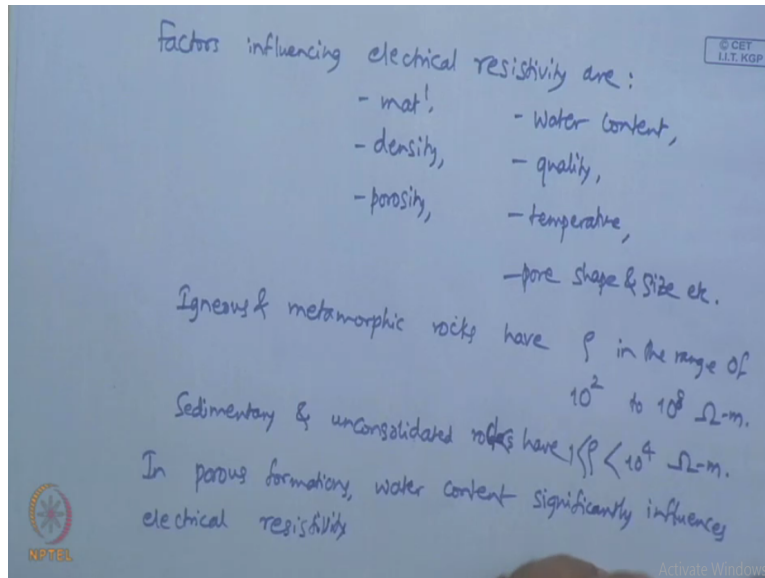 Factors influencing electrical resistivity are:
© CET
I.I.T. KGP
- mat'l.
- density,
- porosity,
- Water Content,
- quality,
- temperature,
- pore shape & size etc.
Igneous & metamorphic rocks have ρ in the range of
10² to 10⁸ Ω-m.
Sedimentary & unconsolidated rocks have 1<ρ<10⁴ Ω-m.
In porous formations, water content significantly influences
electrical resistivity
NPTEL
Activate Windows